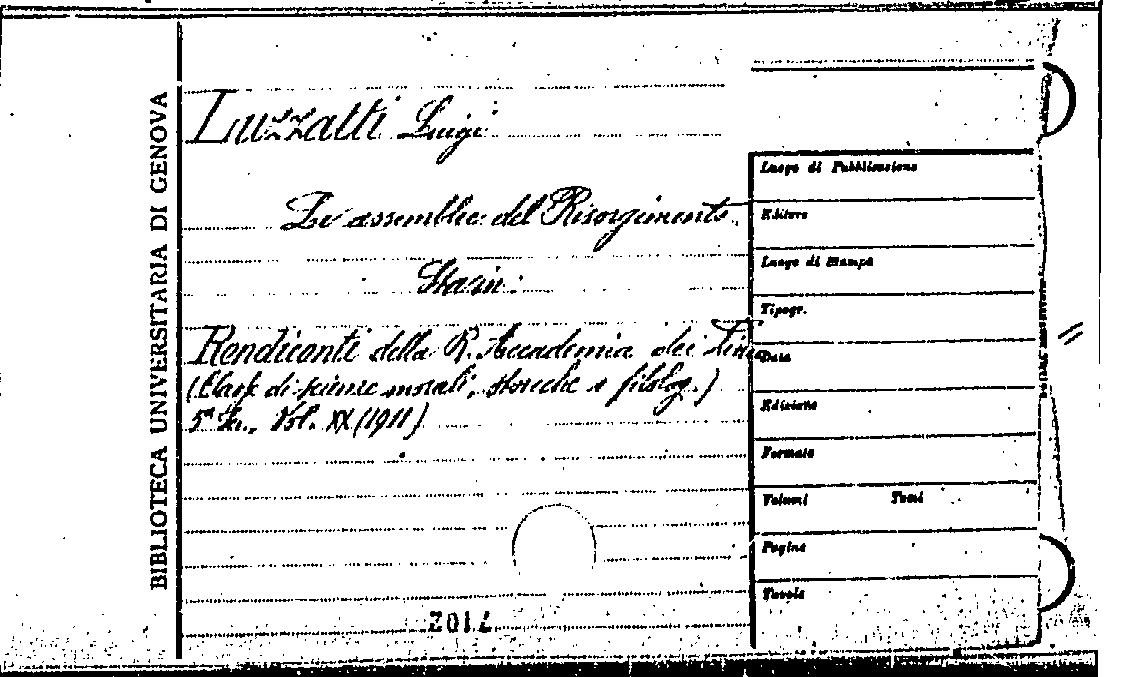 BIBLIOTECA UNIVERSITARIA DI GENOVA
Luzzatti Luigi
Le assemblee del Risorgimento
Sta in:
Rendiconti della R. Accademia dei Lincei
(Classe di scienze morali, storiche e filolog.)
5ª Se., Vol. XX (1911)
Luogo di Pubblicazione
Editore
Luogo di Stampa
Tipogr.
Data
Edizione
Formato
Volumi Tomi
Pagine
Tavole